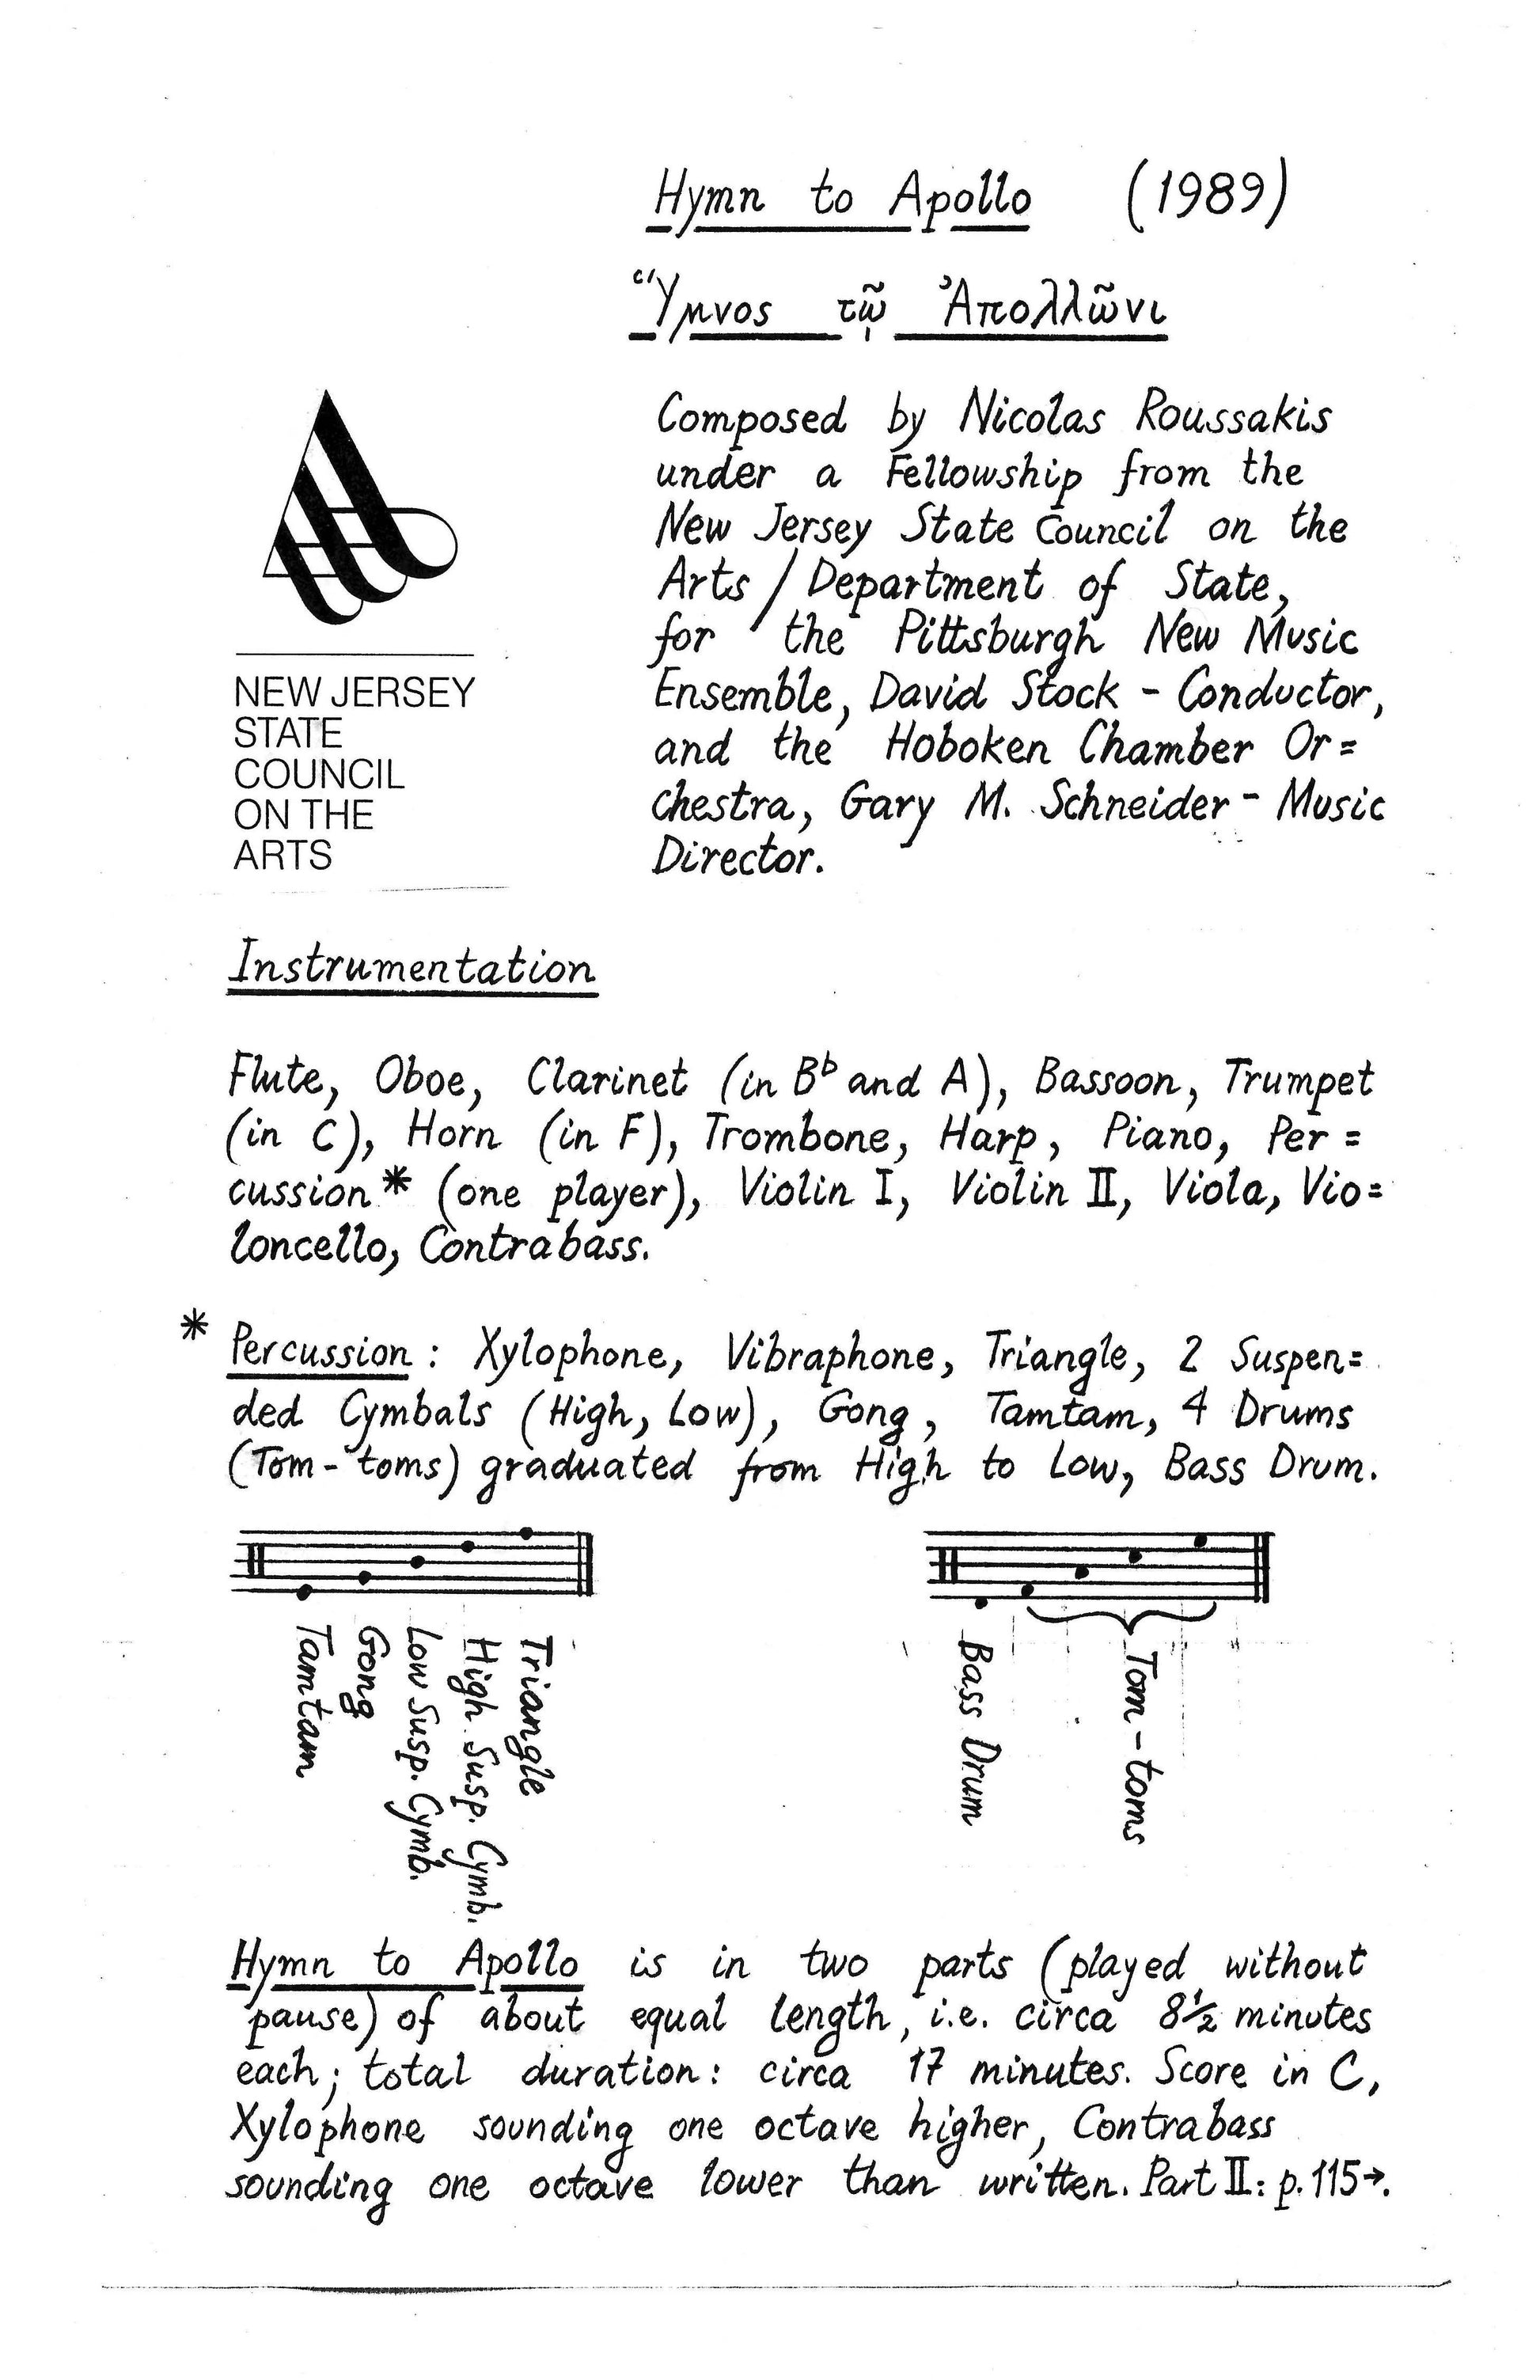 Hymn to Apollo (1989)
Ὕμνος τῷ Ἀπολλῶνι
Composed by Nicolas Roussakis
under a Fellowship from the
New Jersey State Council on the
Arts / Department of State,
for the Pittsburgh New Music
Ensemble, David Stock - Conductor,
and the Hoboken Chamber Or=
chestra, Gary M. Schneider - Music
Director.
NEW JERSEY
STATE
COUNCIL
ON THE
ARTS
Instrumentation
Flute, Oboe, Clarinet (in B♭ and A), Bassoon, Trumpet
(in C), Horn (in F), Trombone, Harp, Piano, Per=
cussion* (one player), Violin I, Violin II, Viola, Vio=
loncello, Contrabass.
* Percussion: Xylophone, Vibraphone, Triangle, 2 Suspen=
ded Cymbals (High, Low), Gong, Tamtam, 4 Drums
(Tom-toms) graduated from High to Low, Bass Drum.
Tamtam
Gong
Low Susp. Cymb.
High Susp. Cymb.
Triangle
Bass Drum
Tom-toms
Hymn to Apollo is in two parts (played without
pause) of about equal length, i.e. circa 8½ minutes
each; total duration: circa 17 minutes. Score in C,
Xylophone sounding one octave higher, Contrabass
sounding one octave lower than written. Part II: p. 115→.